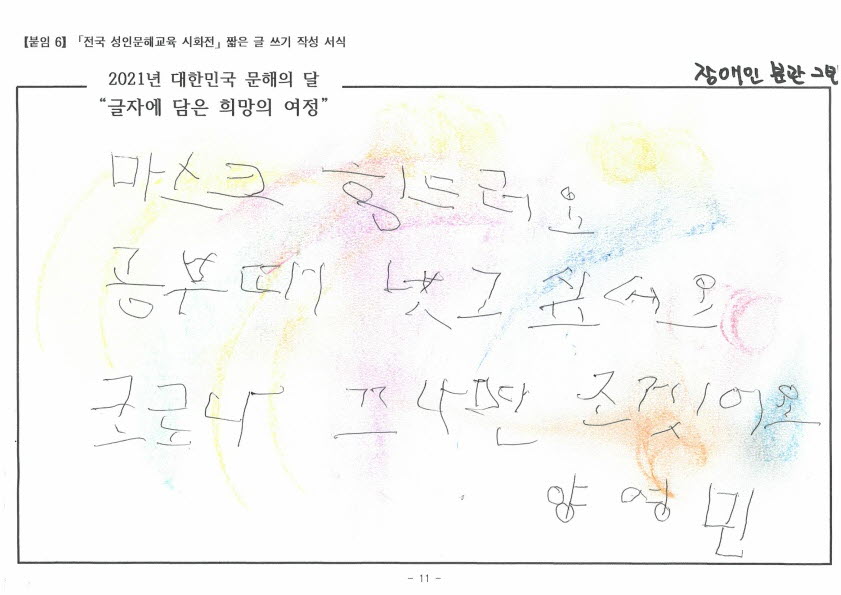 【붙임 6】 「전국 성인문해교육 시화전」 짧은 글 쓰기 작성 서식
장애인 분관 그림
2021년 대한민국 문해의 달
“글자에 담은 희망의 여정”
마스크 힘드러요
공부때 벗고 싶서요
코로나 끄나면 조겟어요
양 영 민
- 11 -